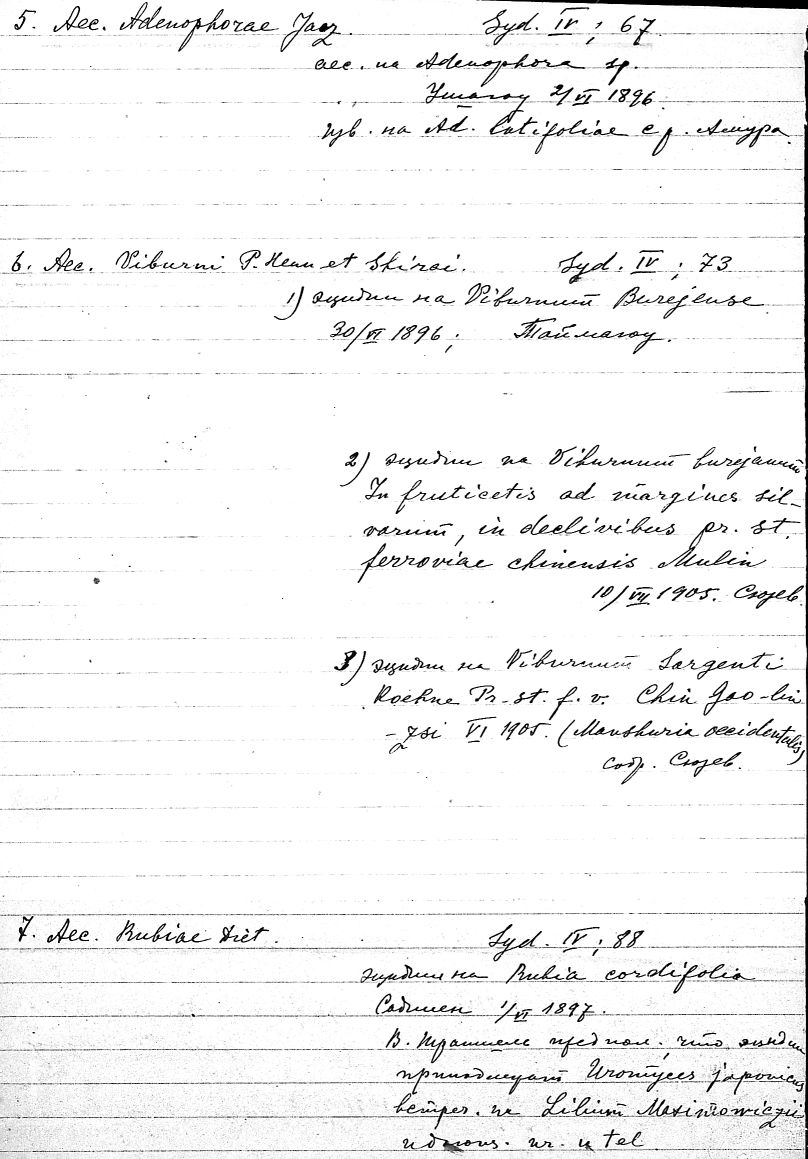 5. Aec. Adenophorae Jacz. Syd. IV ; 67
aec. на Adenophora sp.
2/VI 1896
на Ad. latifoliae с р. Амура.
6. Aec. Viburni P. Henn et Shirai. Syd. IV ; 73
1) эцидии на Viburnum Burejense
30/VI 1896 ;
2) эцидии на Viburnum burejanum
In fruticetis ad margines sil-
varum, in declivibus pr. st.
ferroviae chinensis Mulin
10/VII 1905. Сюзев.
3) эцидии на Viburnum Sargenti
Koehne Pr. st. f. v. Chin Gao-lin
-zsi VI 1905. (Manshuria occidentalis)
собр. Сюзев.
7. Aec. Rubiae Diet. Syd. IV ; 88
эцидии на Rubia cordifolia
1/VI 1897.
В. Траншель предпол., что эцидии
принадлежат Uromyces japonicus
на Lilium Maximowiczii
и tel